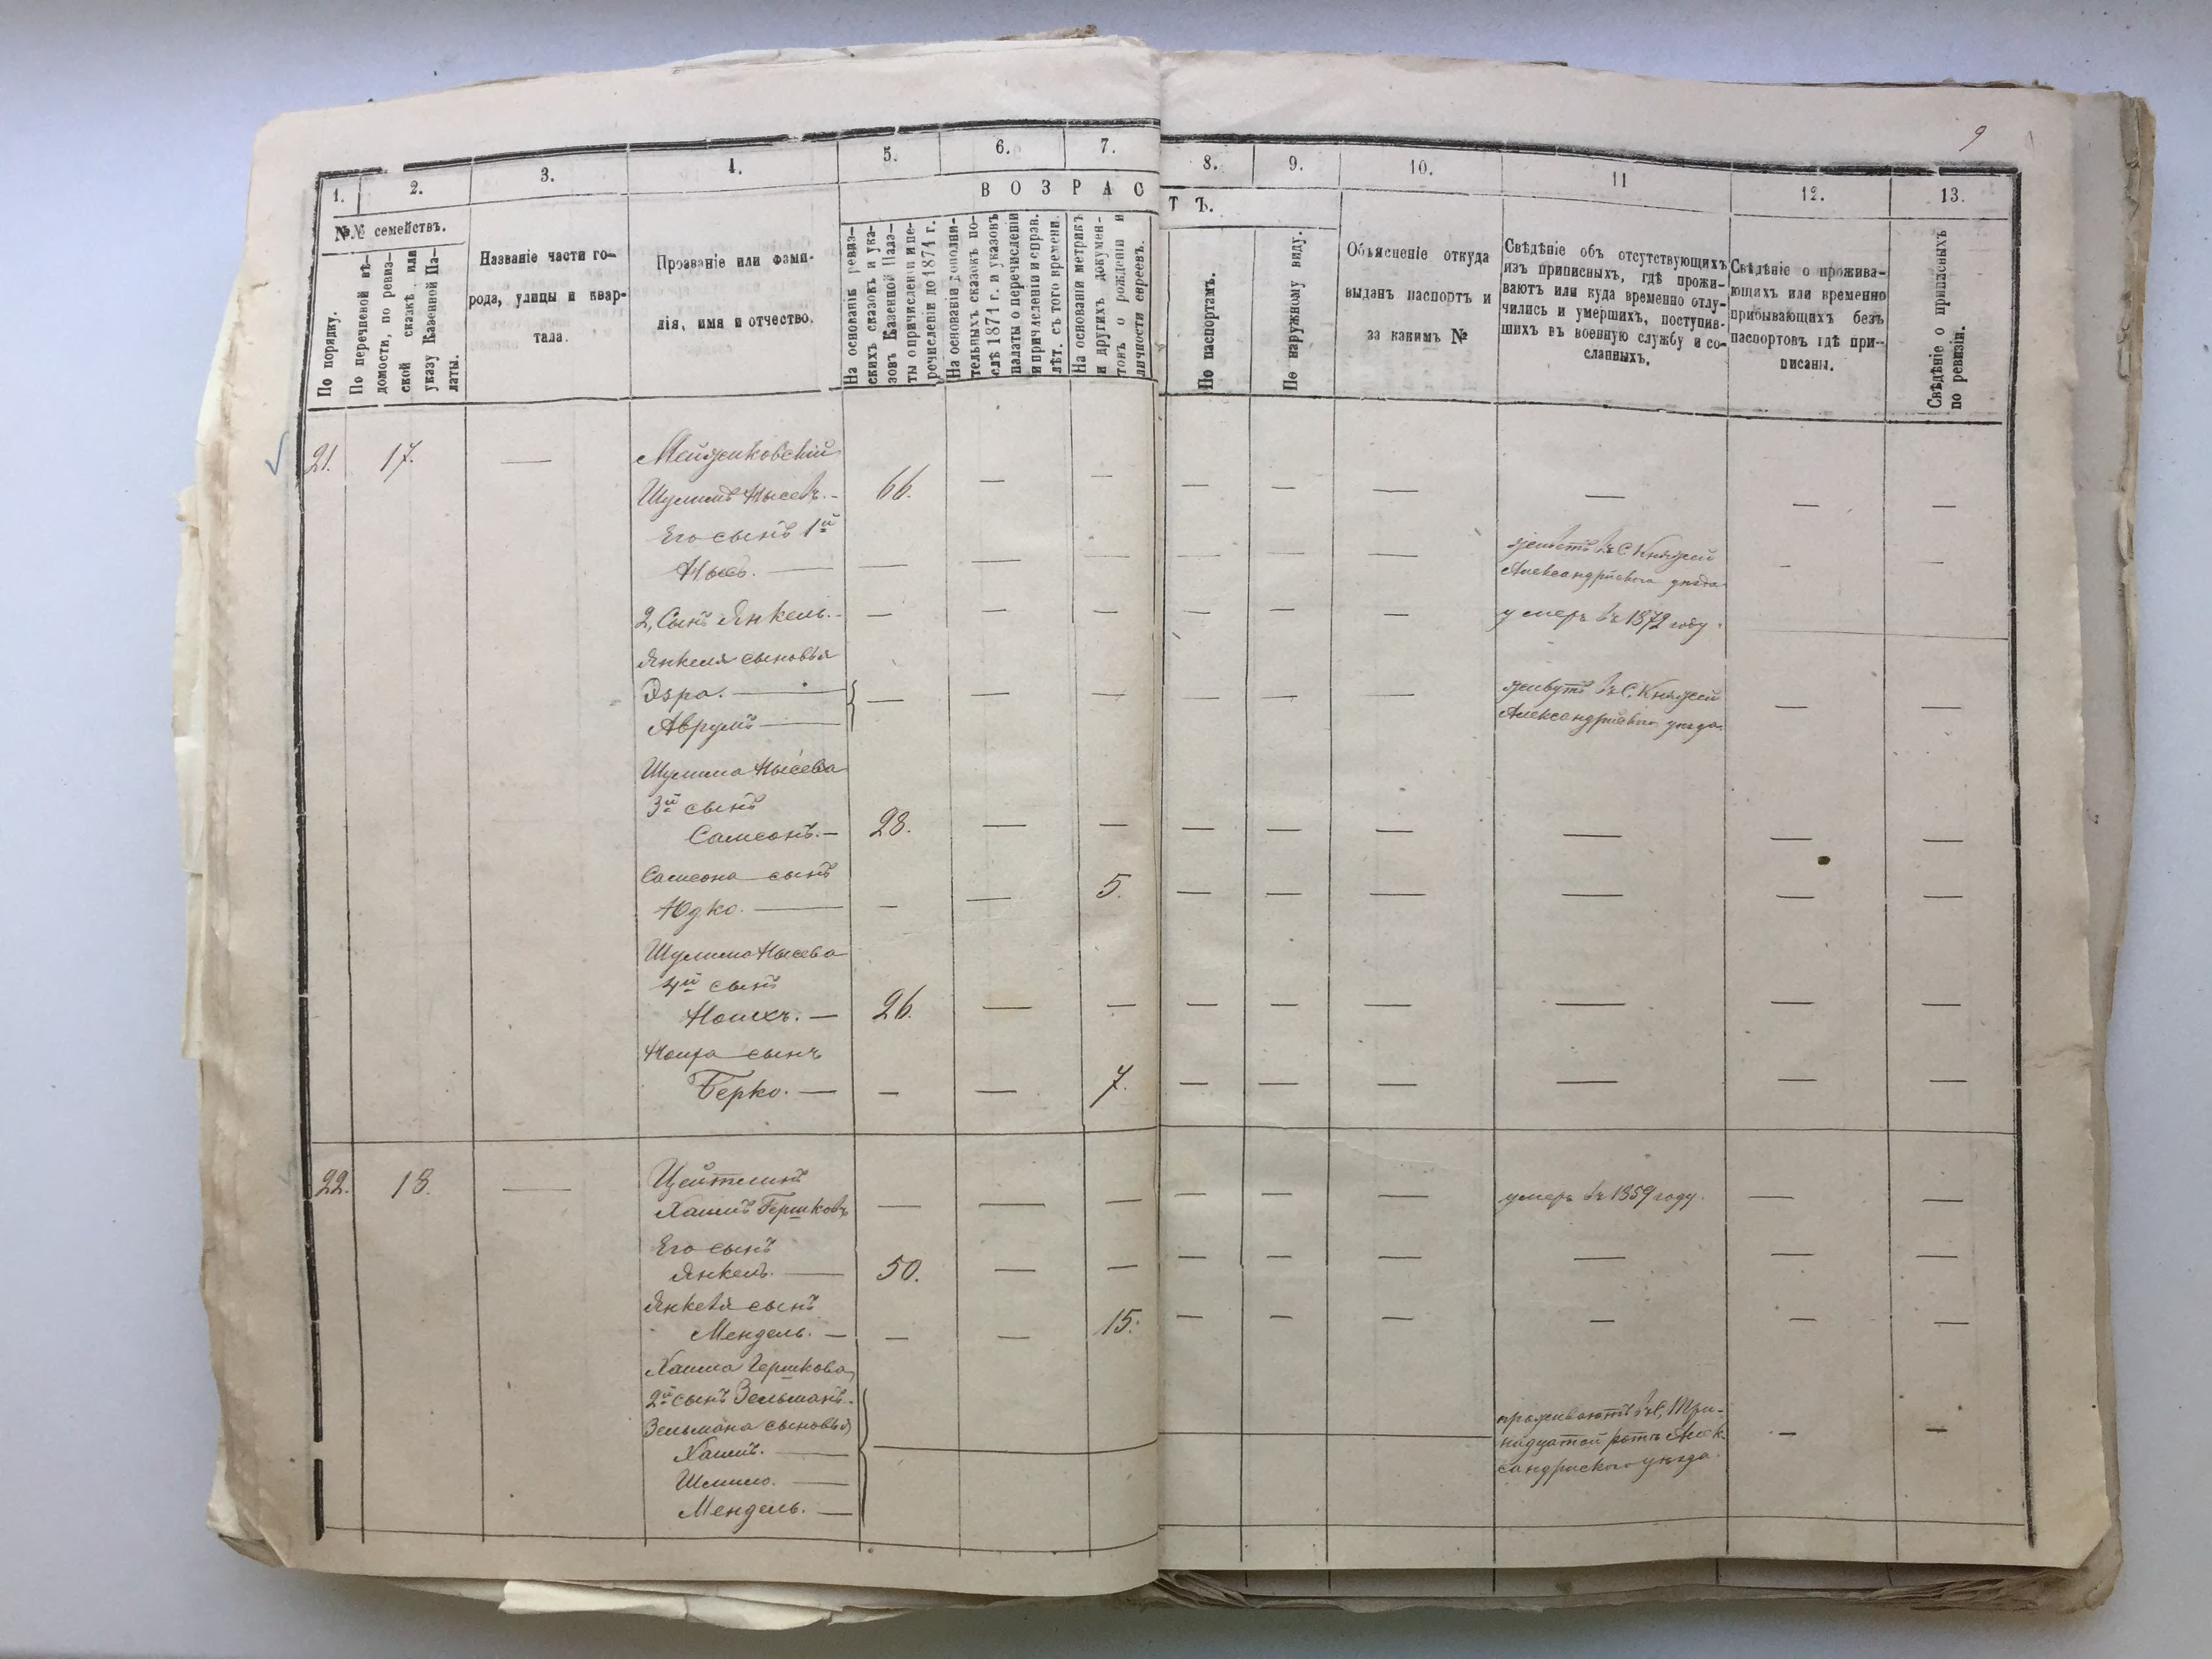 9
1.
2.
3.
4.
5.
6.
7.
8.
9.
10.
11
12.
13.
ВОЗРАС
ТЪ.
№№ семействъ.
По порядку.
По перечневой вѣ-
домости, по ревиз-
ской сказкѣ или
указу Казенной Па-
латы.
Названіе части го-
рода, улицы и квар-
тала.
Прозваніе или фами-
лія, имя и отчество.
На основаніи ревиз-
скихъ сказокъ и ука-
зовъ Казенной Пала-
ты о причисленіи и пе-
речисленіи до 1874 г.
На основаніи дополни-
тельныхъ сказокъ по-
слѣ 1874 г. и указовъ
палаты о перечисленіи
и причисленіи и справ.
лѣт. съ того времени.
На основаніи метрикъ
и другихъ докумен-
товъ о рожденіи и
личности евреевъ.
По паспортамъ.
По наружному виду.
Объясненіе откуда
выданъ паспортъ и
за какимъ №
Свѣдѣніе объ отсутствующихъ
изъ приписныхъ, гдѣ прожи-
ваютъ или куда временно отлу-
чились и умершихъ, поступив-
шихъ въ военную службу и со-
сланныхъ.
Свѣдѣніе о прожива-
ющихъ или временно
прибывающихъ безъ
паспортовъ гдѣ при-
писаны.
Свѣдѣніе о приписныхъ
по ревизіи.
21. 17. —
Шулимъ Нысевъ. — 66. — — — — — — — —
Его сынъ 1й
Нысь. — — — — — — — живетъ въ С. Княжей — —
Александрійского уѣзда
2, Сынъ Янкель. — — — — — — — умеръ въ 1872 году.
Янкеля сыновья
Эзра. — — — — — — — живутъ въ С. Княжей — —
Аврумъ — Александрійского уѣзда.
Шулима Нысева
3й сынъ
Самсонъ. — 28. — — — — — — — —
Самсона сынъ
Юдко. — — — 5. — — — — — —
Шулима Нысева
4й сынъ
— 26. — — — — — — — —
сынъ
Берко. — — — 7. — — — — — —
22. 18. — Цейтлинъ
Хаимъ Гершковъ — — — — — — умеръ въ 1859 году. — —
Его сынъ
Янкель. — 50. — — — — — — — —
Янкеля сынъ
Мендель. — — — 15. — — — — — —
Хаима Гершкова
2й сынъ Зельманъ.
Зельмана сыновья
Хаимъ. —
Шлиомо. —
Мендель. —
проживаютъ въ С. Три-
надцатой ротѣ Алек-
сандрійского уѣзда.
— —